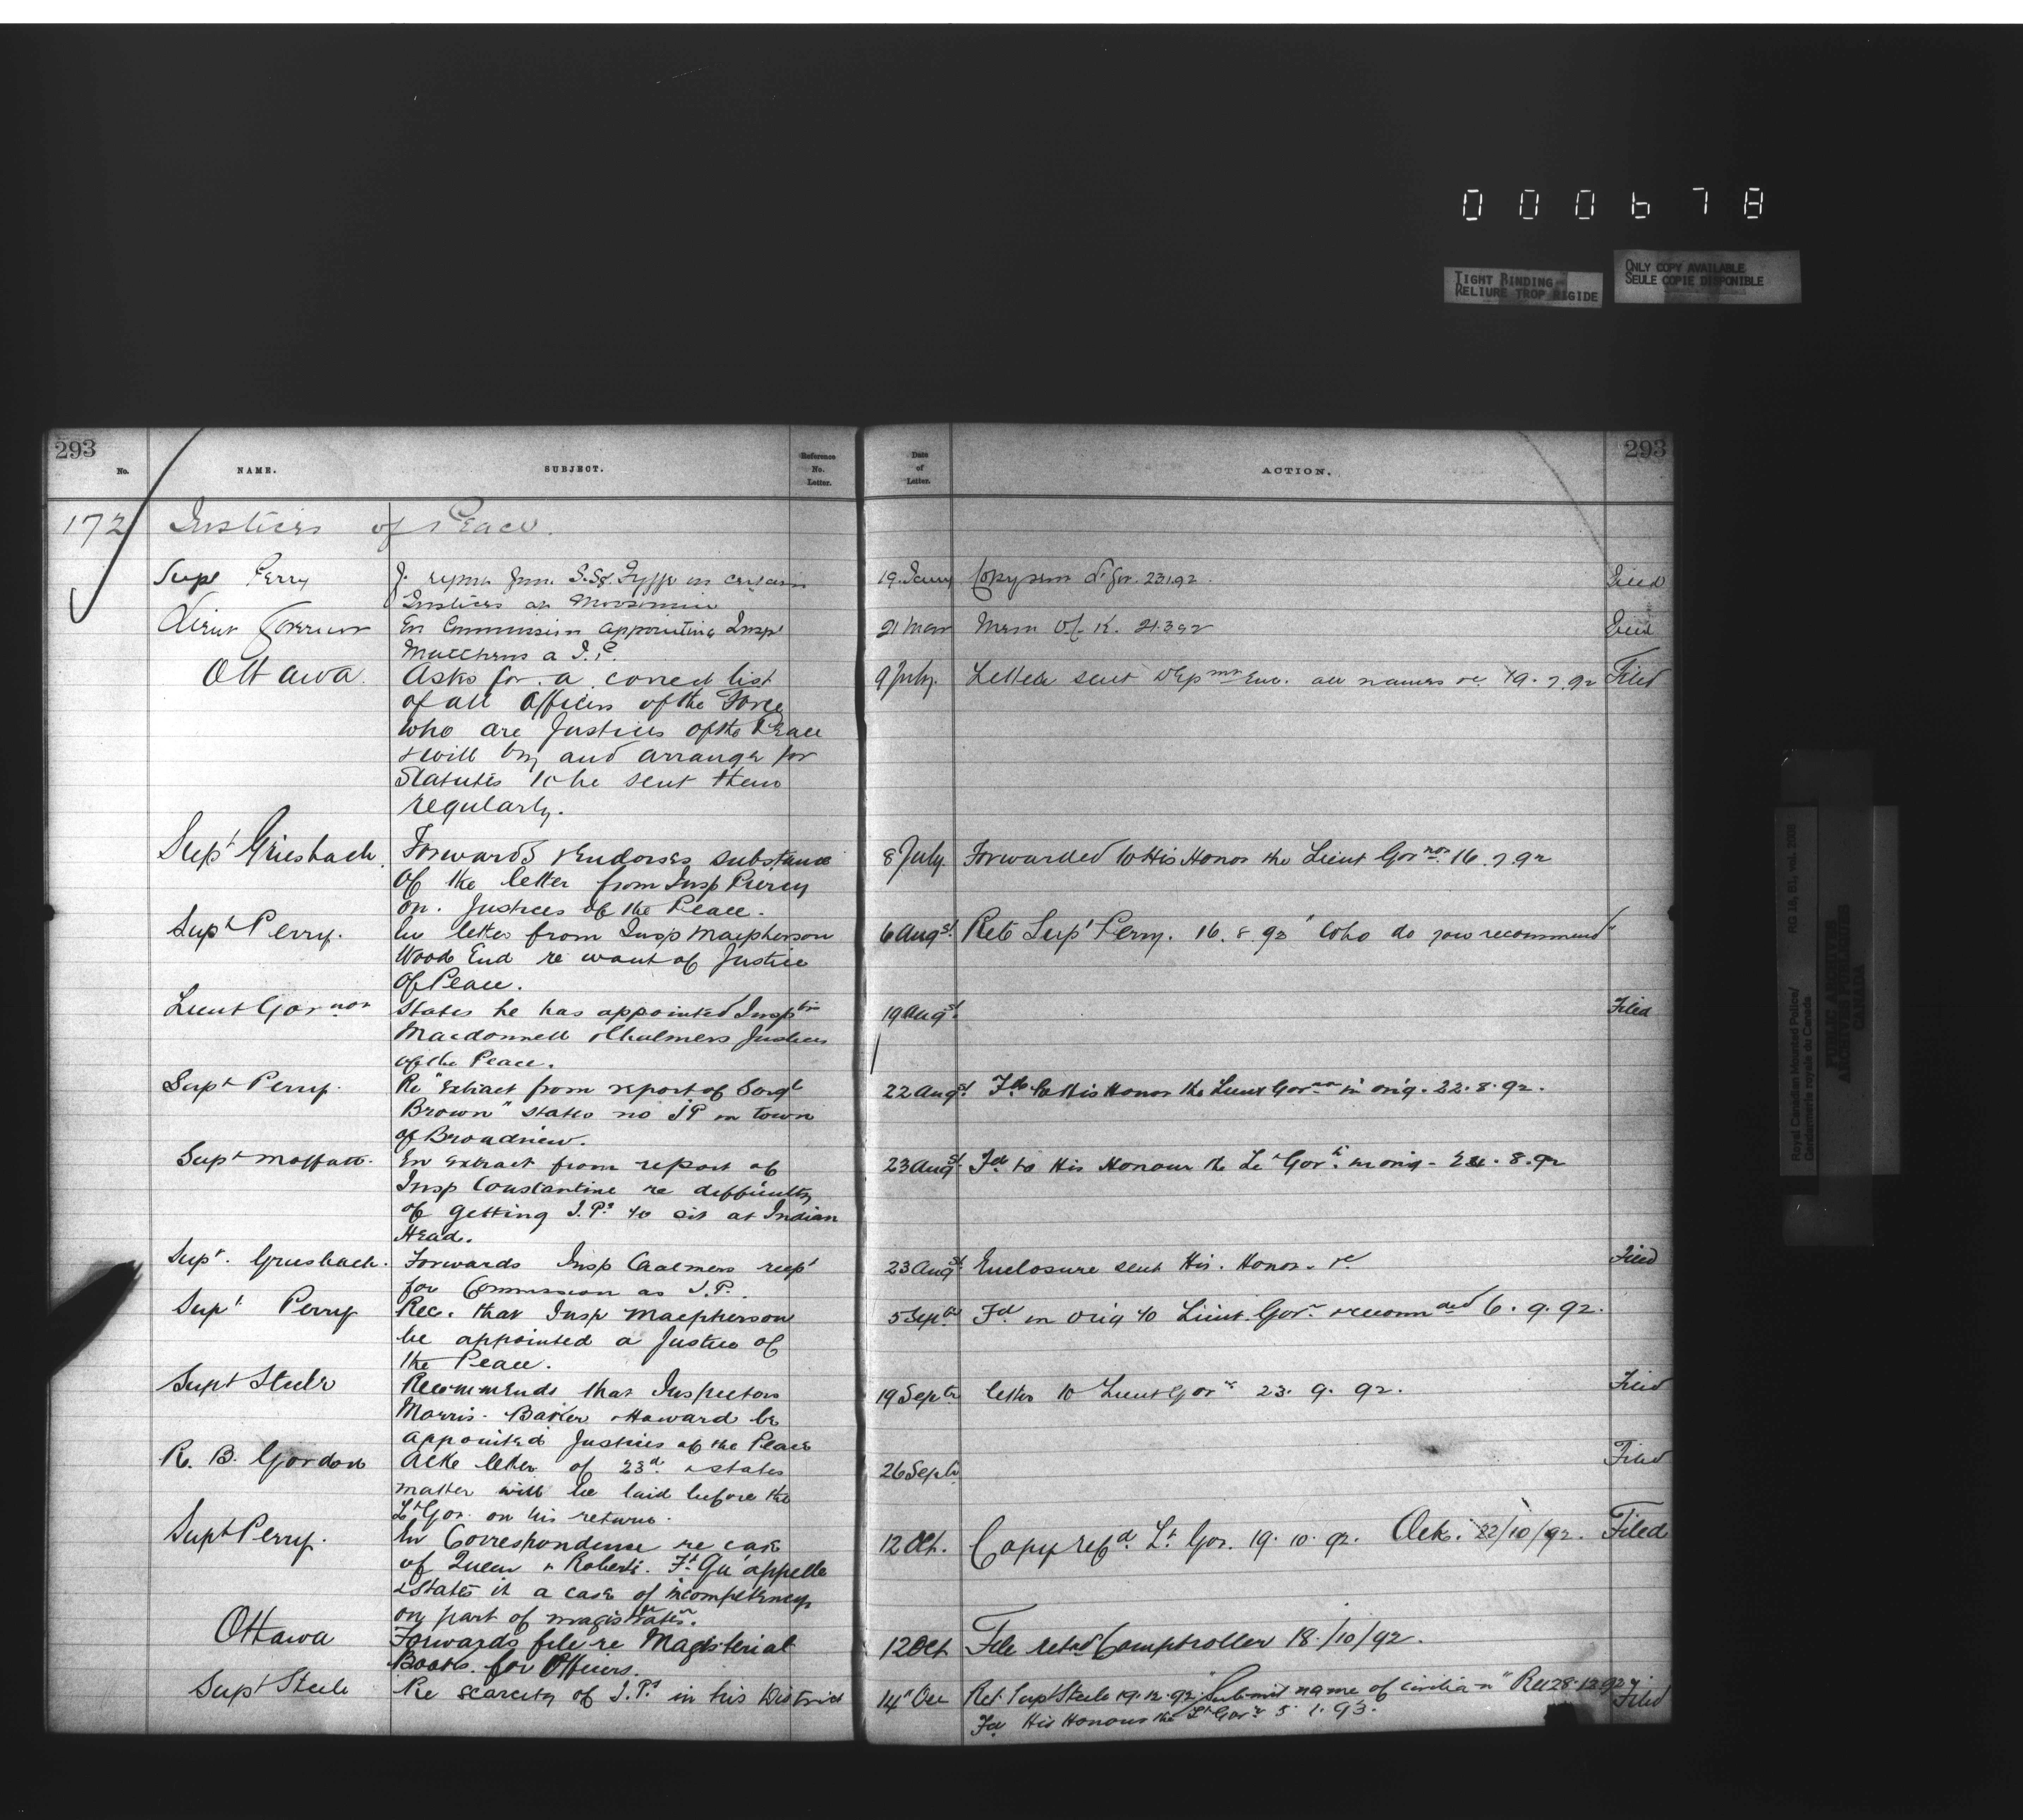 000678
TIGHT BINDING
RELIURE TROP RIGIDE
ONLY COPY AVAILABLE
SEULE COPIE DISPONIBLE
293
No.
NAME.
SUBJECT.
Reference
No.
Letter.
Date
of
Letter.
ACTION.
293
172 Justices of Peace.
Supt Perry
in certain
Justices at Moosomin
19 Jany
Copy sent Lt Gov. 23.1.92.
Filed
Lieut Governor
En Commission appointing Insp
Matthews a J.P.
21 Mar
Mem 21.3.92
Filed
Ottawa.
Asks for a correct list
of all Officers of the Force
who are Justices of the Peace
& will try and arrange for
Statutes to be sent them
regularly.
9 July.
Letter sent all names re 19.7.92
Filed
Supt Griesbach.
Forwards & Endorses substance
of the letter from Insp Piercy
on. Justices of the Peace.
8 July
Forwarded to His Honor the Lieut Govnor 16.7.92
Supt Perry.
En letter from Insp Macpherson
Wood End re want of Justice
of Peace.
6 Augst
Retd Supt Perry. 16.8.92 "Who do you recommend"
Lieut Governor
States he has appointed Insptrs
Macdonnell & Chalmers Justices
of the Peace.
19 Augst.
Filed
Supt Perry.
Re "Extract from report of Sergt
Brown" states no JP in town
of Broadview.
22 Augst
Fd to His Honor the Lieut Govnor in orig. 22.8.92.
Supt Moffatt.
En extract from report of
Insp Constantine re difficulty
of getting J.Ps to sit at Indian
Head.
23 Augst
Fd to His Honour the Lt Govr. in orig - 24.8.92
Supt. Griesbach.
Forwards Insp Chalmers recpt
for Commission as J.P.
23 Augst
Enclosure sent His. Honor. re
Filed
Supt Perry
Rec. that Insp Macpherson
be appointed a Justice of
the Peace.
5 Septbr
Fd in orig to Lieut. Govr & recommded 6.9.92.
Supt Steele
Recommends that Inspectors
Morris. Baker & Howard be
appointed Justices of the Peace
19 Septbr
letter to Lieut Govr 23.9.92.
Filed
R. B. Gordon
Acks letter of 23d & states
matter will be laid before the
Lt Gov. on his return.
26 Septbr
Filed
Supt Perry.
En Correspondence re case
of Queen v Roberts. Ft Qu'appelle
& States it a case of incompetency
on part of magistrates.
12 Oct.
Copy refd. Lt Gov. 19.10.92. Ack. 22/10/92.
Filed
Ottawa
Forwards file re Magisterial
Books for Officers.
12 Oct
File retd Comptroller 18/10/92.
Supt Steele
Re scarcity of J.Ps in his District
14 Dec
Ret. Supt Steele 19.12.92 "Submit name of civilian" Rec 28.12.92
Fd His Honour the Lt Govr 5.1.93.
Filed
Royal Canadian Mounted Police/
Gendarmerie royale du Canada
RG 18, B1, vol.
PUBLIC ARCHIVES
ARCHIVES PUBLIQUES
CANADA